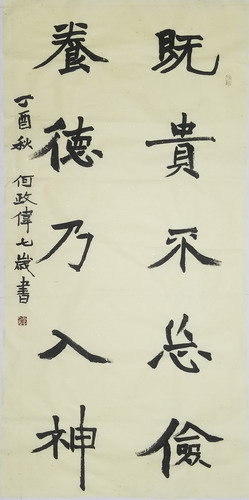 既貴不忘儉
養德乃入神
丁酉秋 何政偉七歲書